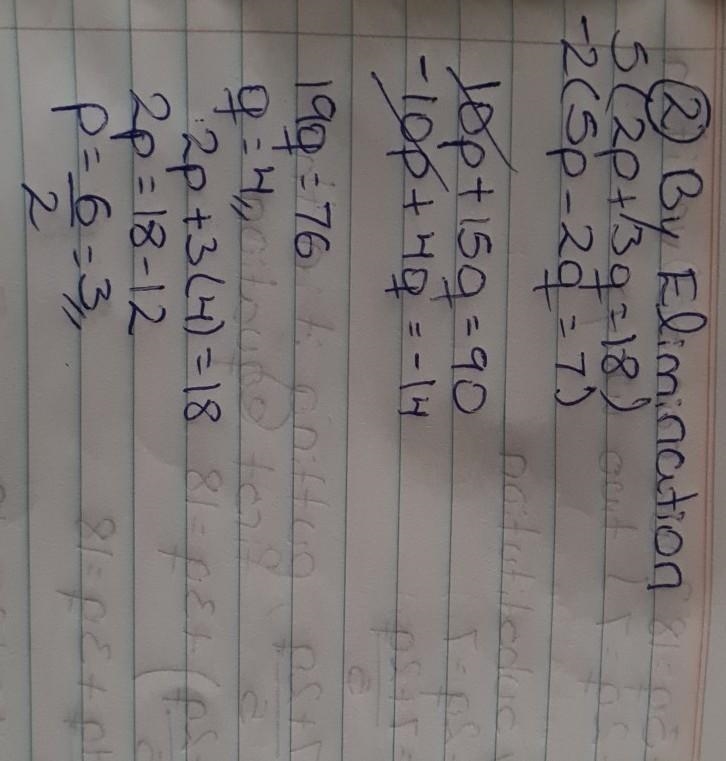 ② By Elimination
5(2p+3q=18)
-2(5p-2q=7)
10p+15q=90
-10p+4q=-14
19q=76
q=4,,
2p+3(4)=18
2p=18-12
p=6/2=3,,